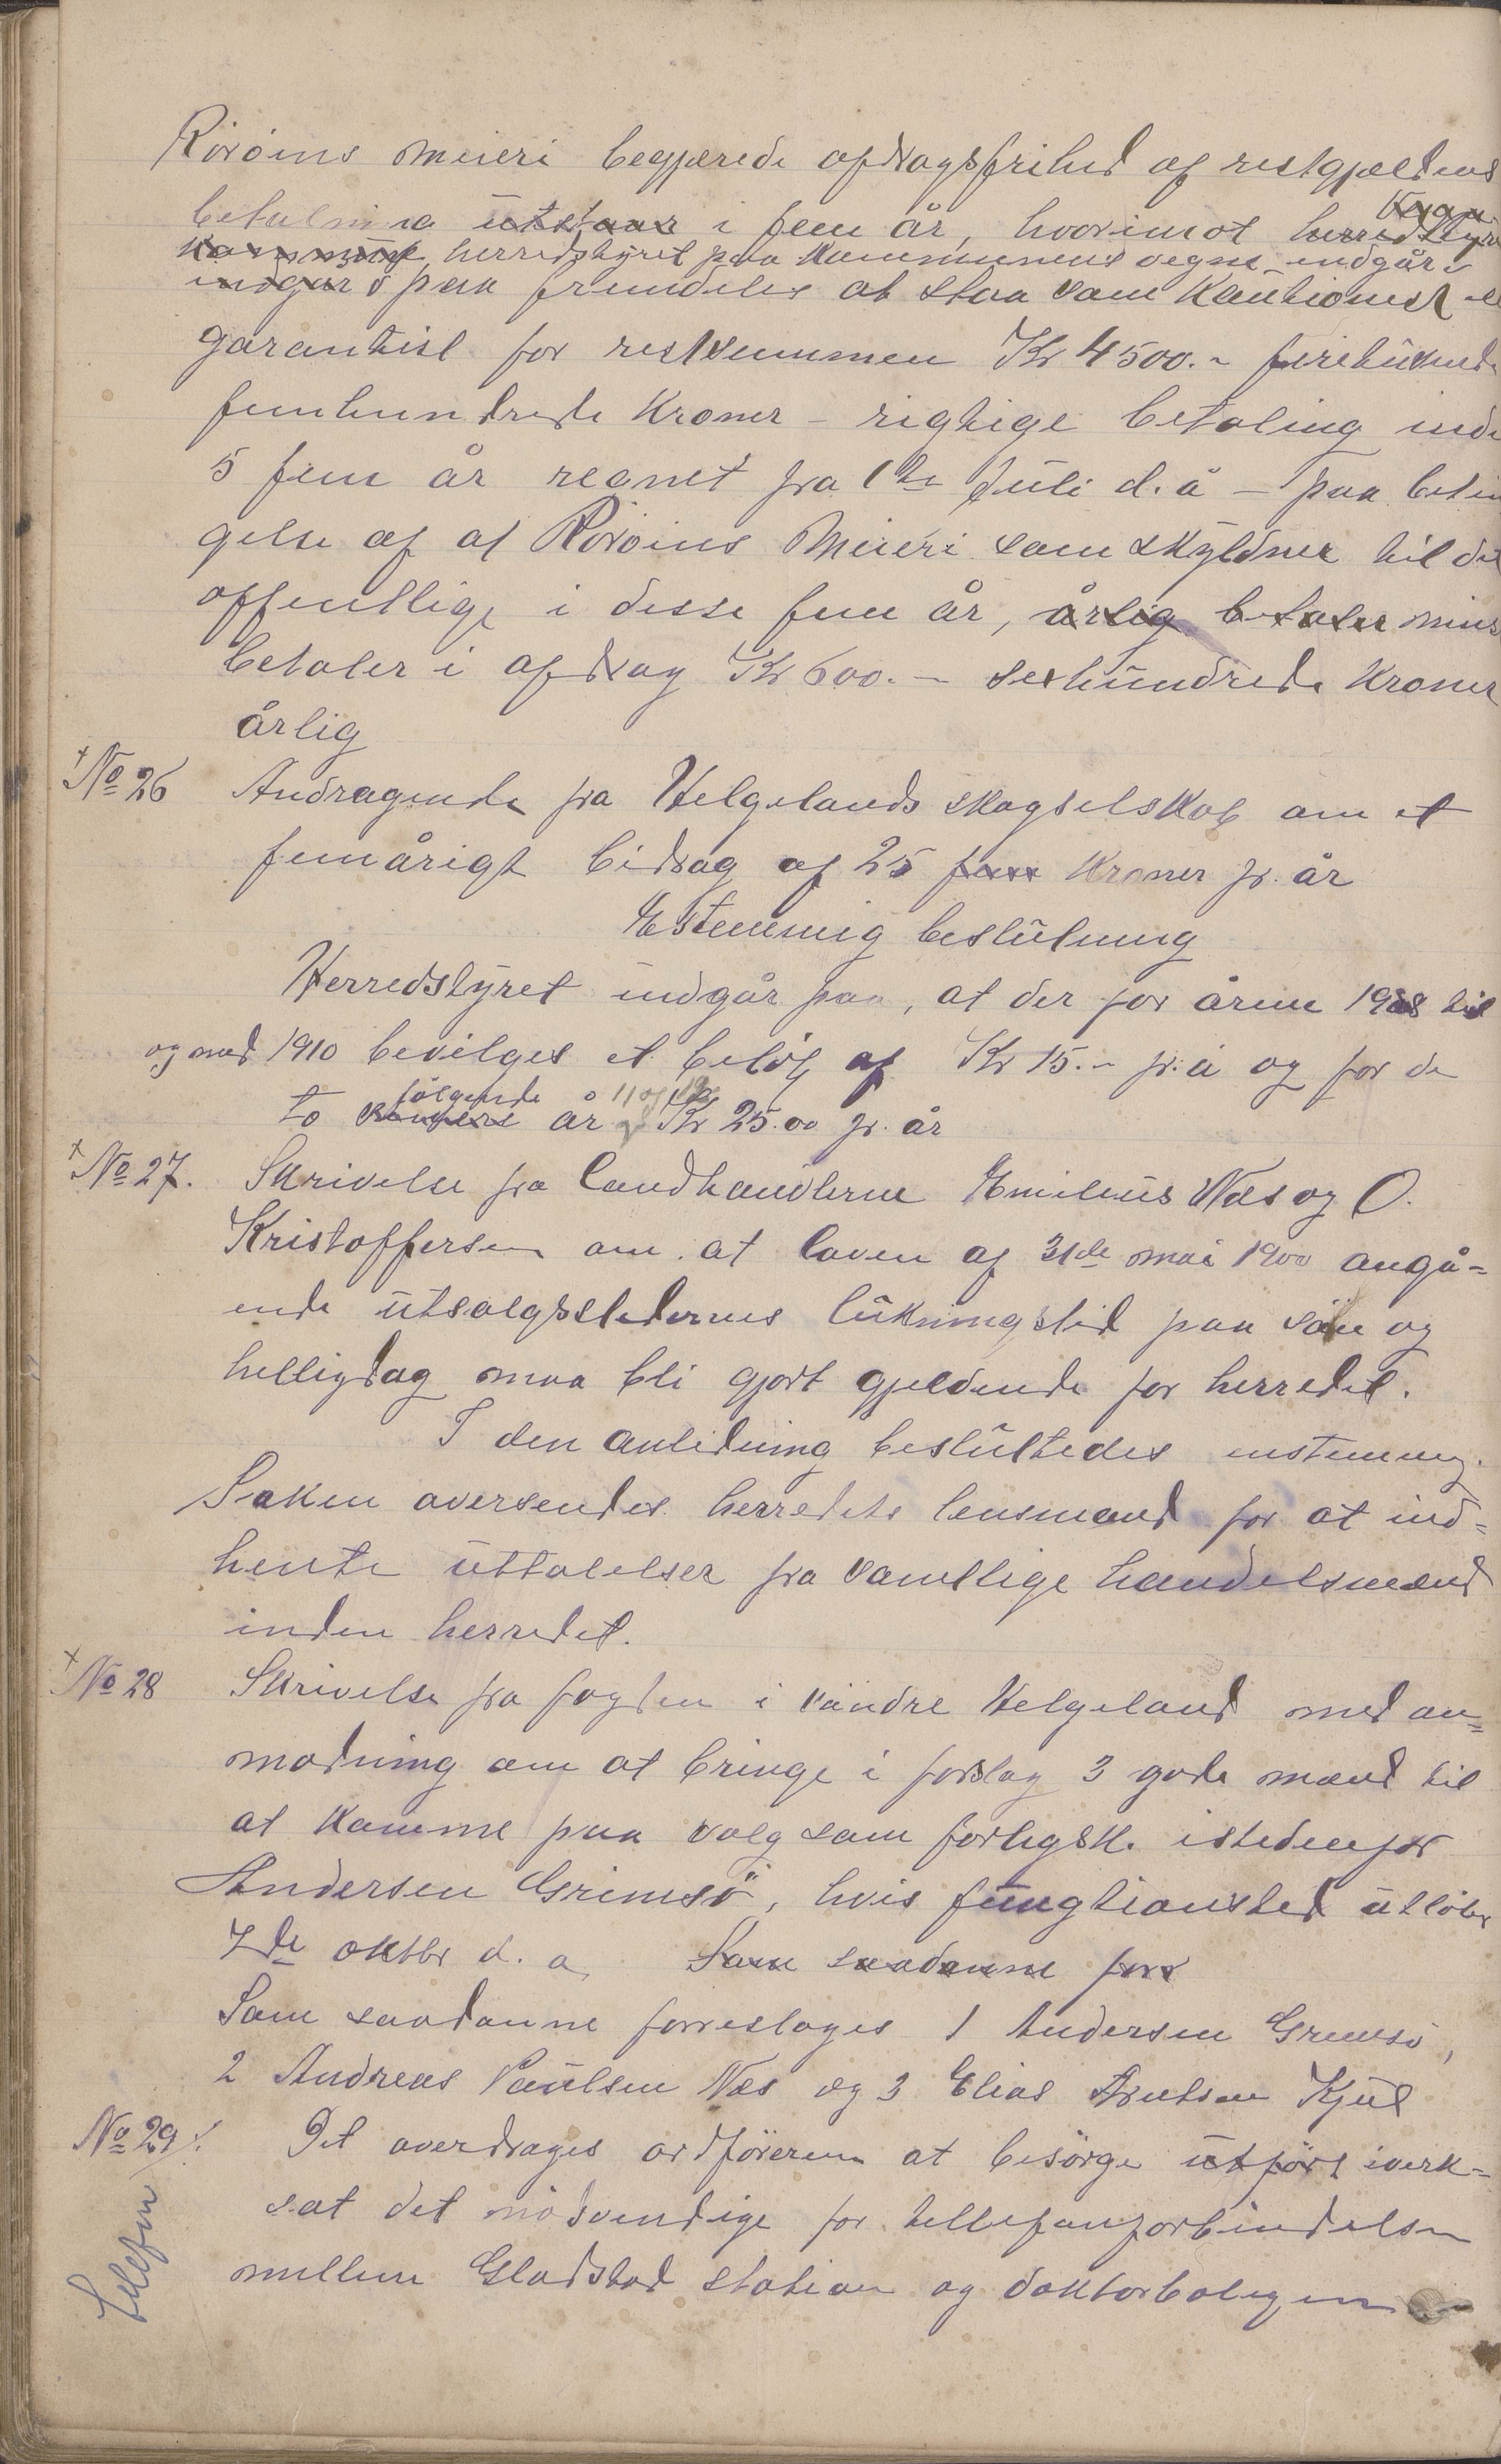 Röröens meieri begjærede afdragsfrihed af restgjældens
betalning utstaar i fem år, hvorimot herredstyre
Kommune herredstyret paa Kommunens vegne indgår
indgår paa fremdeles at staa som Kautionist
garantist for restsummen Kr 4500.- firetusende
femhundrede Kroner - rigtige betaling inde
5 fem år regnet fra 1ste Juli d. å - paa betin
gelse af at Rörøens Meieri som skyldner til det
offentlige i desse fem år, årlig betaler mins
betaler i afdrag Kr 600.- sexhundrede Kroner
årlig
No 26 Andragende fra Helgelands skogselskab om et
femårigt bidrag af 25 fem Kroner pr. år
Enstemmig beslutning
Herredstyret indgår paa, at der for årene 1908 til
og med 1910 bevilges et beløb af Kr 15.- pr. å og for de
følgende 11 og 12
to år Kr 25.00 pr. år
No 27. Skrivelse fra landhandlerne Emilius Næs og O.
Kristoffersen om at loven af 31de mai 1900 angå-
ende utsalgsstedernes lukningstid paa søn og
helligdag maa bli gjort gjeldende for herredet.
I den anledning besluttedes enstemmig.
Saken oversendes herredets lensmand for at ind-
hente uttalelser fra samtlige handelsmænd
inden herredet.
No 28 Skrivelse fra fogden i søndre Helgeland med an-
modning om at bringe i forslag 3 gode mænd til
at komme paa valg som forligsk. istedenfor
Andersen Grimsö, hvis fungtionstid utløber
7de oktbr d. a. Som saadanne fore
Som saadanne foreslages 1 Andersen Grimsö,
2 Andreas Paulsen Næs og 3 Elias Arntsen Kjul
No 29. Det overdrages ordföreren at besörge utført iverk-
sat det nödvendige for tellefonforbindelsen
mellem Gladstad station og doktorboligen
Telefon